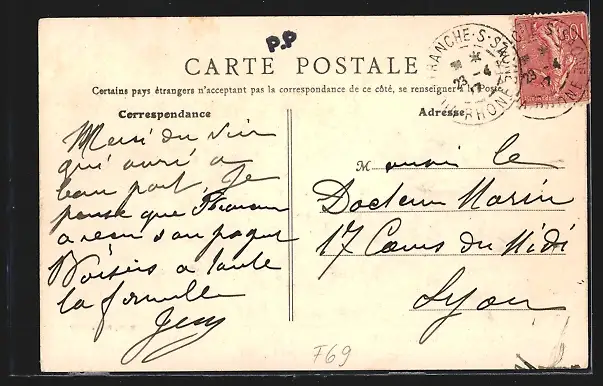 P.P
CARTE POSTALE
Certains pays étrangers n'acceptant pas la correspondance de ce côté, se renseigner à la Poste
Correspondance
Adresse
Merci du vin
qui arrivé a
bon port, Je
pense que
a reçu son paquet
Baisers a toute
la famille
M onsieur le
Docteur Marin
17 Cours du Midi
Lyon
F69
RANCHE-S-SAÔNE
23 -4
RHONE
10
23 -4